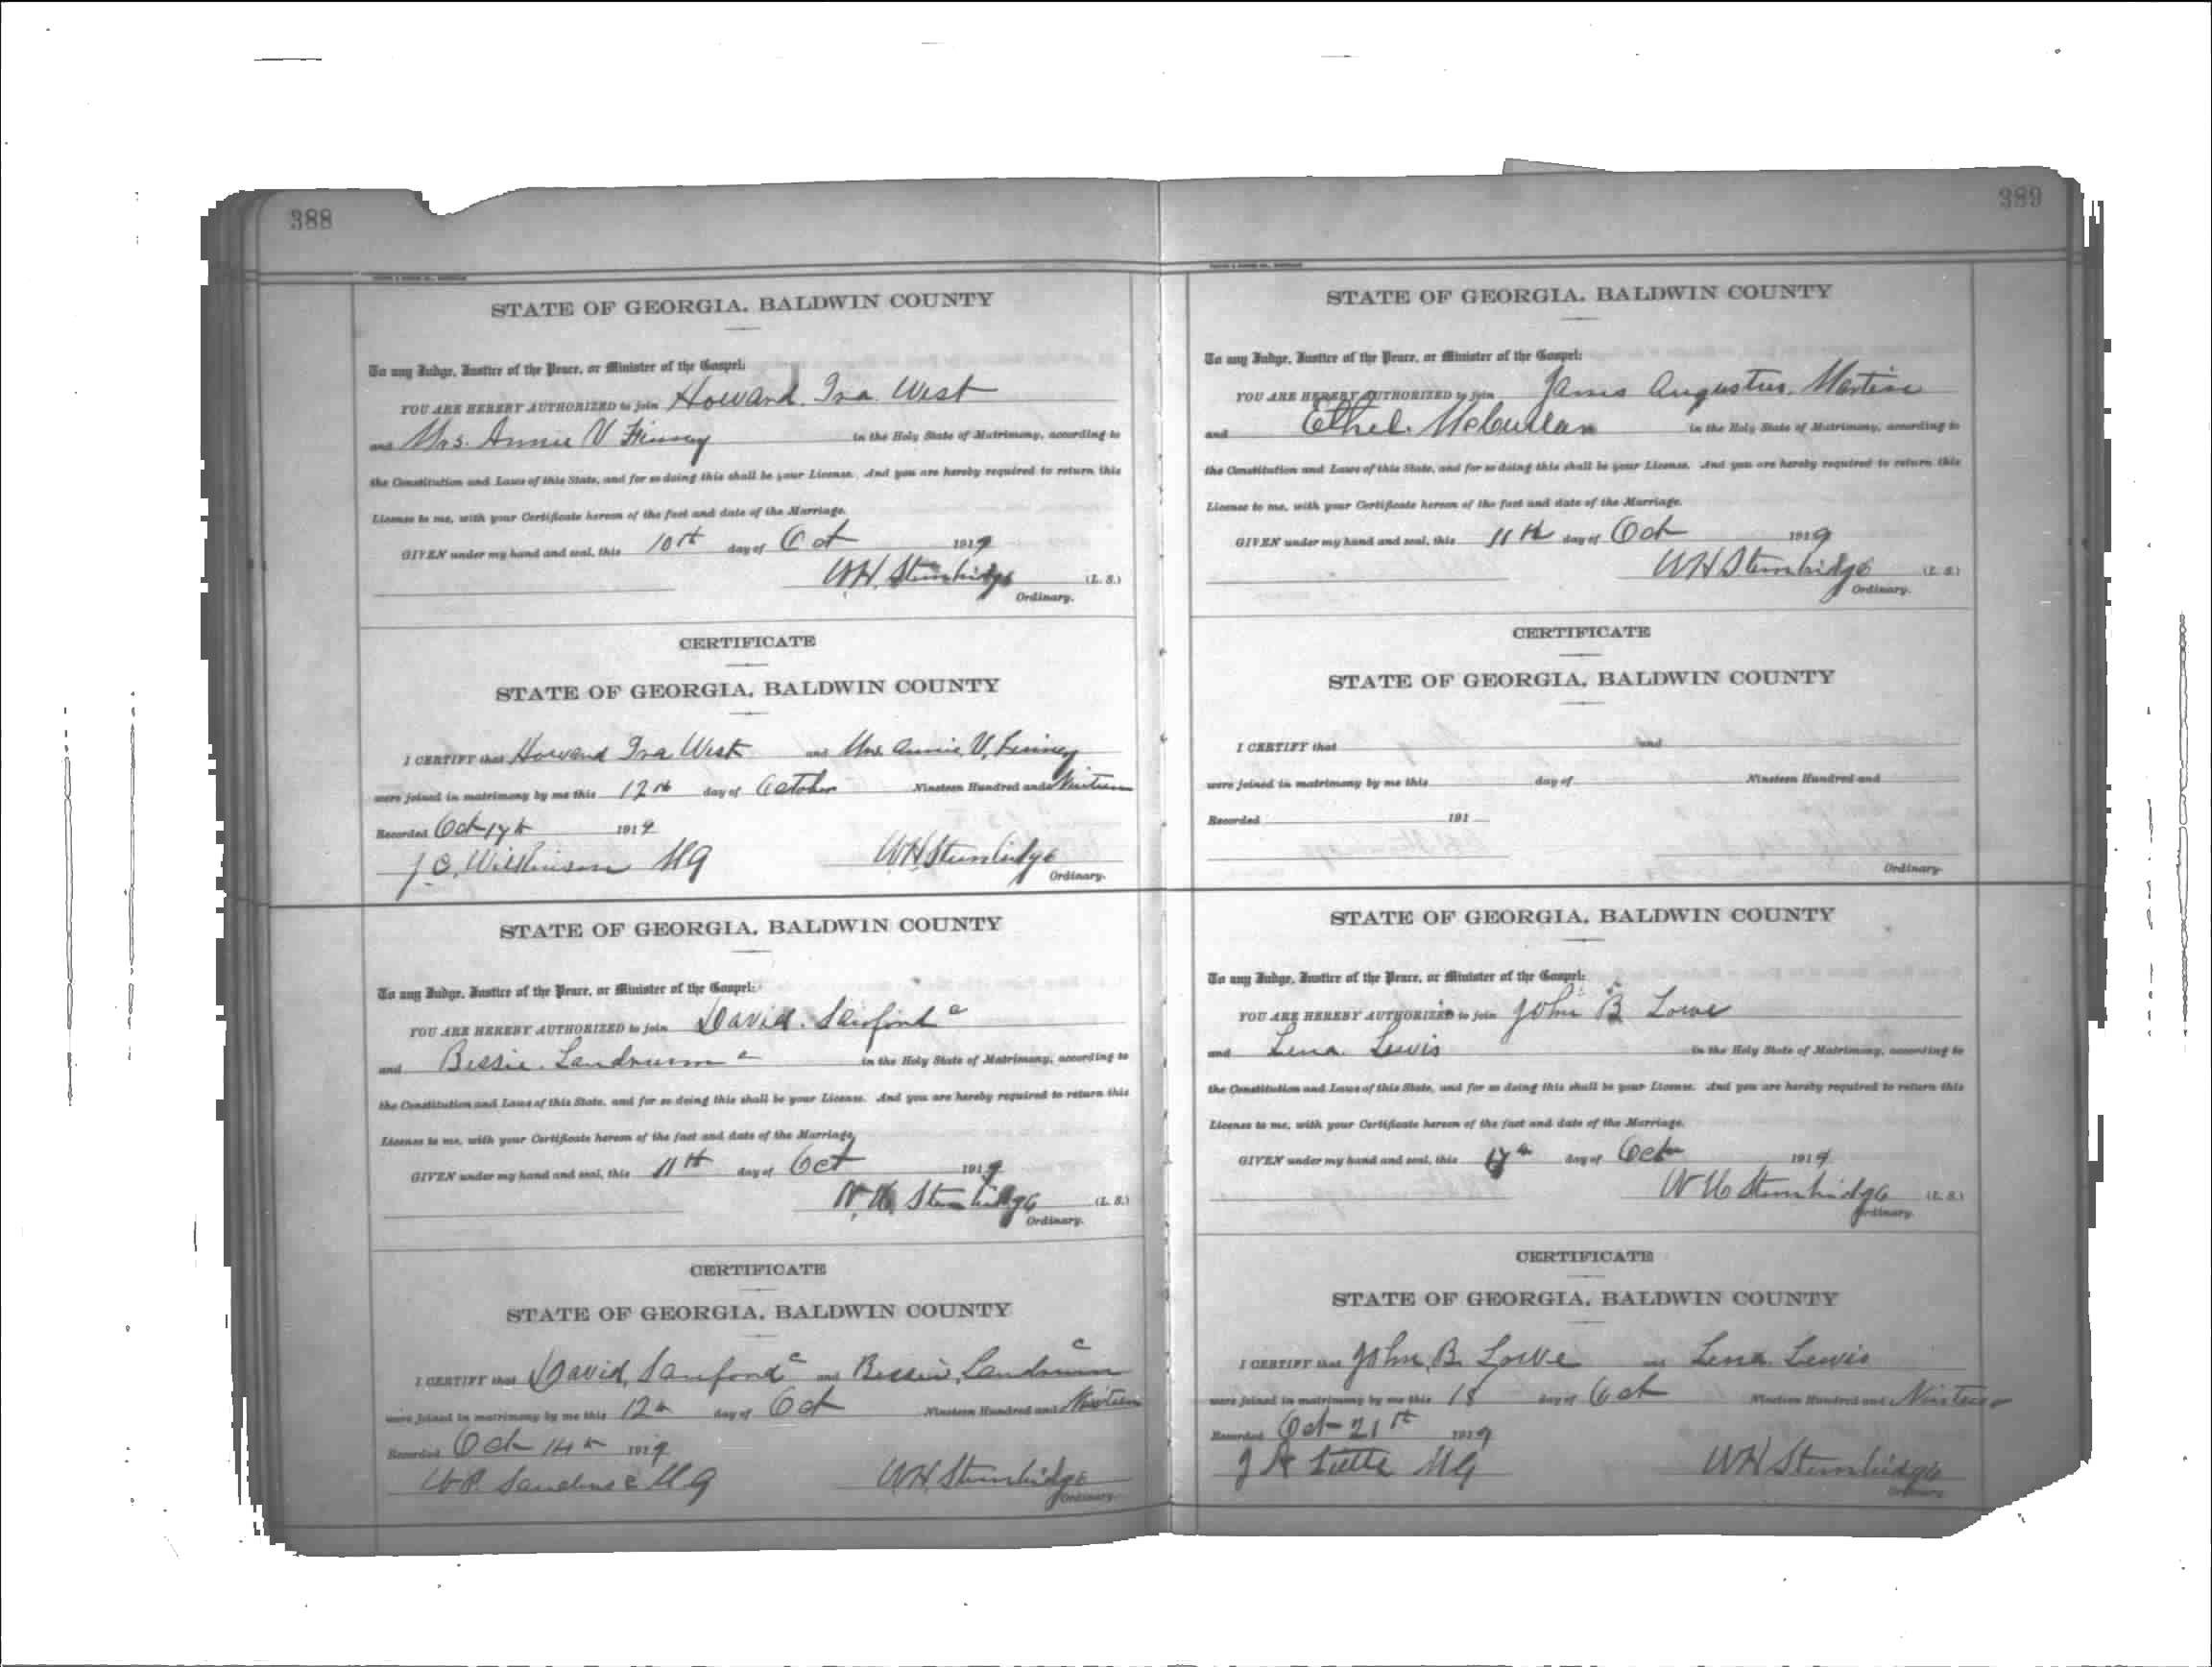 388
STATE OF GEORGIA, BALDWIN COUNTY
To any Judge, Justice of the Peace, or Minister of the Gospel:
YOU ARE HEREBY AUTHORIZED to join Howard Ira West
and Mrs. Annie V Finney in the Holy State of Matrimony, according to
the Constitution and Laws of this State, and for so doing this shall be your License. And you are hereby required to return this
License to me, with your Certificate hereon of the fact and date of the Marriage.
GIVEN under my hand and seal, this 10th day of Oct 1919
W.H. Stembridge (L. S.)
Ordinary.
CERTIFICATE
STATE OF GEORGIA, BALDWIN COUNTY
I CERTIFY that Howard Ira West and Mrs. Annie V. Finney
were joined in matrimony by me this 12th day of October Nineteen Hundred and Nineteen
Recorded Oct 17th 1919
J. O. Wilkinson MG W.H. Stembridge
Ordinary.
STATE OF GEORGIA, BALDWIN COUNTY
To any Judge, Justice of the Peace, or Minister of the Gospel:
YOU ARE HEREBY AUTHORIZED to join David. Sanford c
and Bessie. Landrum c in the Holy State of Matrimony, according to
the Constitution and Laws of this State, and for so doing this shall be your License. And you are hereby required to return this
License to me, with your Certificate hereon of the fact and date of the Marriage.
GIVEN under my hand and seal, this 11th day of Oct 1919
W. H. Stembridge (L. S.)
Ordinary.
CERTIFICATE
STATE OF GEORGIA, BALDWIN COUNTY
I CERTIFY that David, Sanford c and Bessie, Landrum c
were joined in matrimony by me this 12th day of Oct Nineteen Hundred and Nineteen
Recorded Oct 14th 1919
c MG W.H. Stembridge
Ordinary.
389
STATE OF GEORGIA, BALDWIN COUNTY
To any Judge, Justice of the Peace, or Minister of the Gospel:
YOU ARE HEREBY AUTHORIZED to join James Augustus. Martin
and Ethel. McCullar in the Holy State of Matrimony, according to
the Constitution and Laws of this State, and for so doing this shall be your License. And you are hereby required to return this
License to me, with your Certificate hereon of the fact and date of the Marriage.
GIVEN under my hand and seal, this 11th day of Oct 1919
W H Stembridge (L. S.)
Ordinary.
CERTIFICATE
STATE OF GEORGIA, BALDWIN COUNTY
I CERTIFY that and
were joined in matrimony by me this day of Nineteen Hundred and
Recorded 191
Ordinary.
STATE OF GEORGIA, BALDWIN COUNTY
To any Judge, Justice of the Peace, or Minister of the Gospel:
YOU ARE HEREBY AUTHORIZED to join John B Lowe
and Lena Lewis in the Holy State of Matrimony, according to
the Constitution and Laws of this State, and for so doing this shall be your License. And you are hereby required to return this
License to me, with your Certificate hereon of the fact and date of the Marriage.
GIVEN under my hand and seal, this 17th day of Oct 1919
W H Stembridge (L. S.)
Ordinary.
CERTIFICATE
STATE OF GEORGIA, BALDWIN COUNTY
I CERTIFY that John, B. Lowe and Lena. Lewis
were joined in matrimony by me this 18 day of Oct Nineteen Hundred and Nineteen
Recorded Oct 21st 1919
MG W H Stembridge
Ordinary.